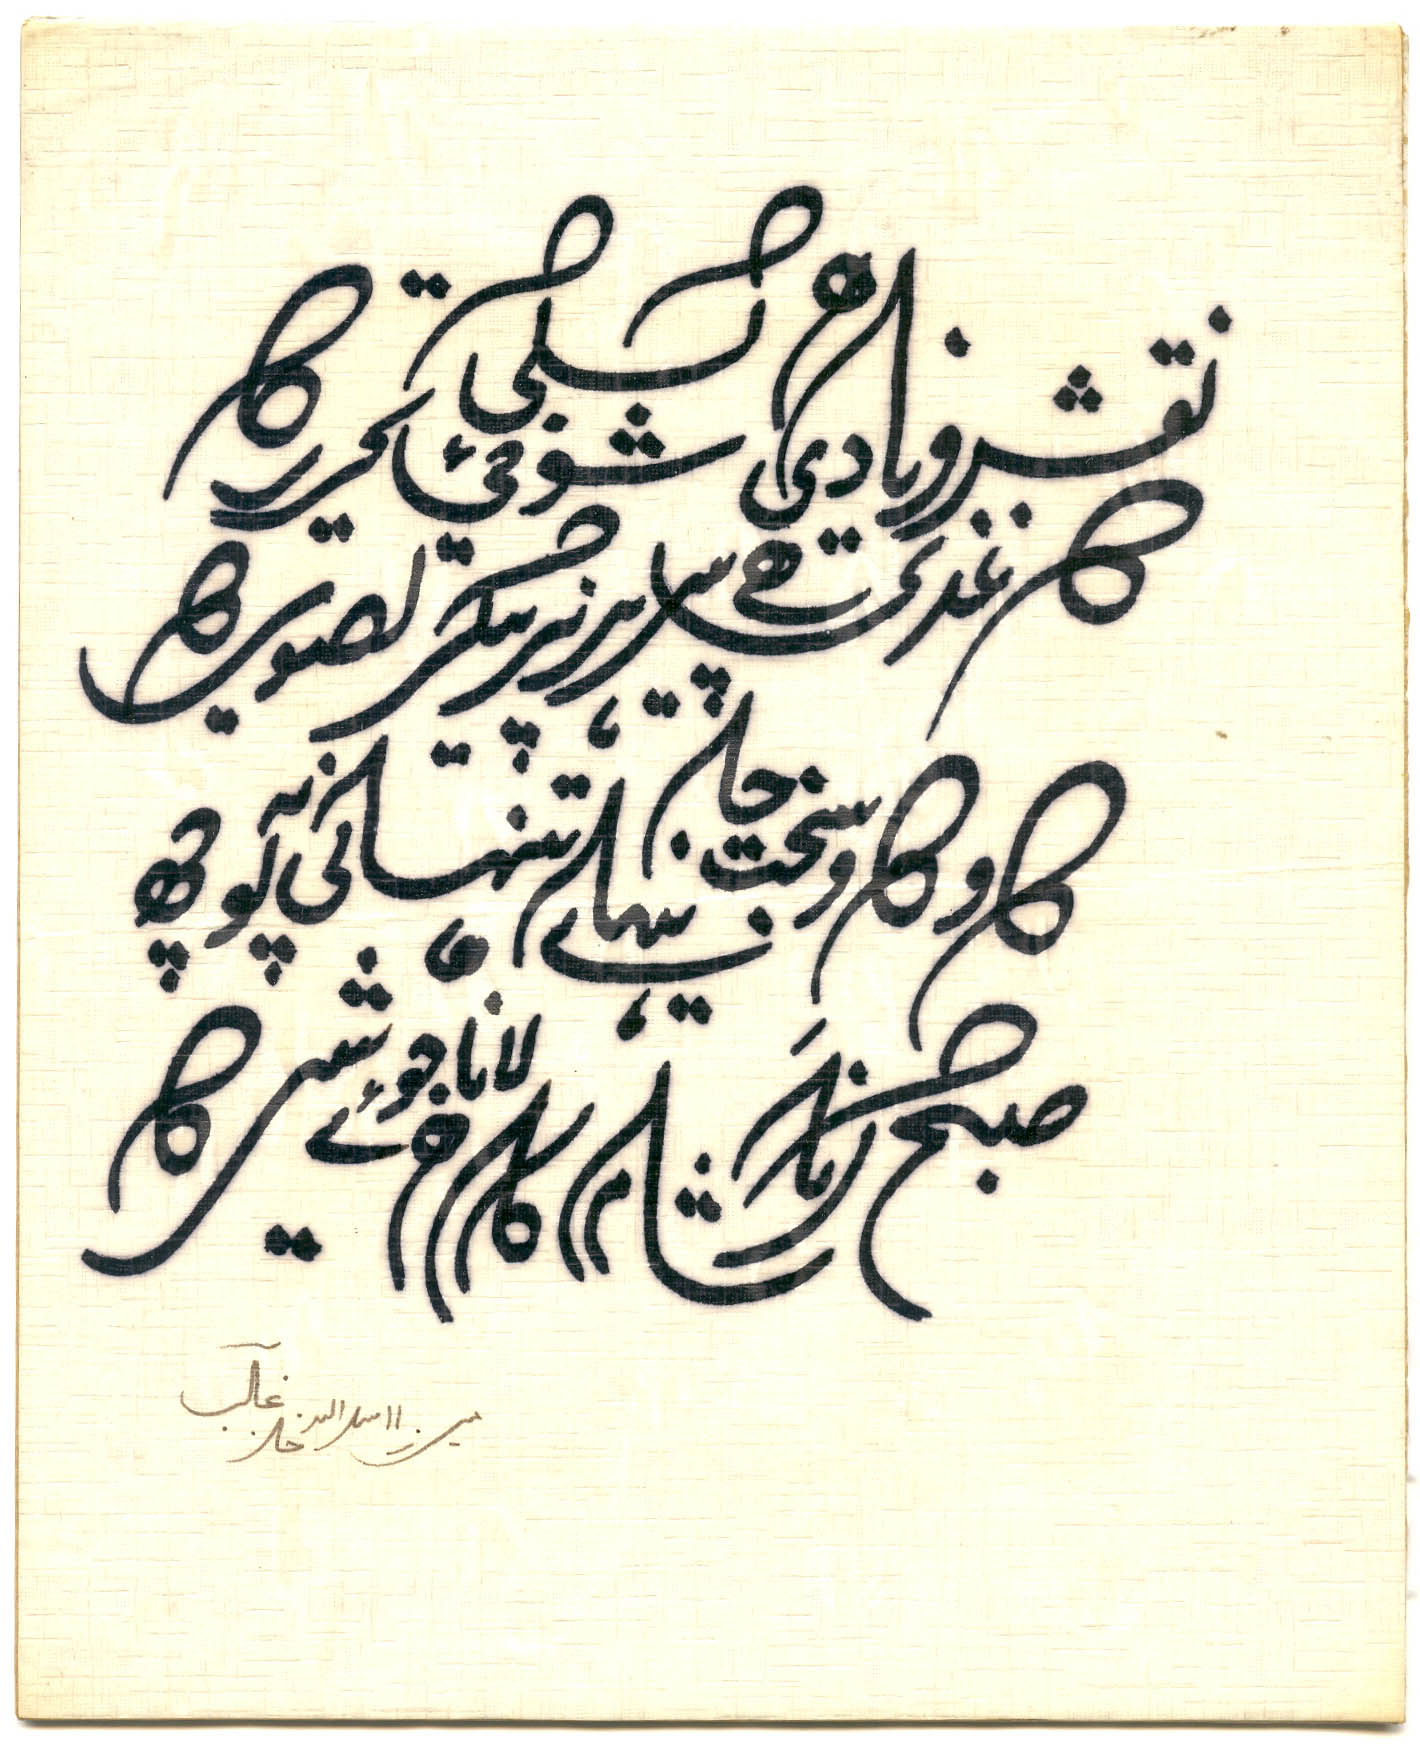 نقش فریادی ہے کس کی شوخیٔ تحریر کا
کاغذی ہے پیرہن ہر پیکر تصویر کا
کاو کاو سخت جانی ہائے تنہائی نہ پوچھ
صبح کرنا شام کا لانا ہے جوئے شیر کا
میرزا اسد اللہ خان غالب